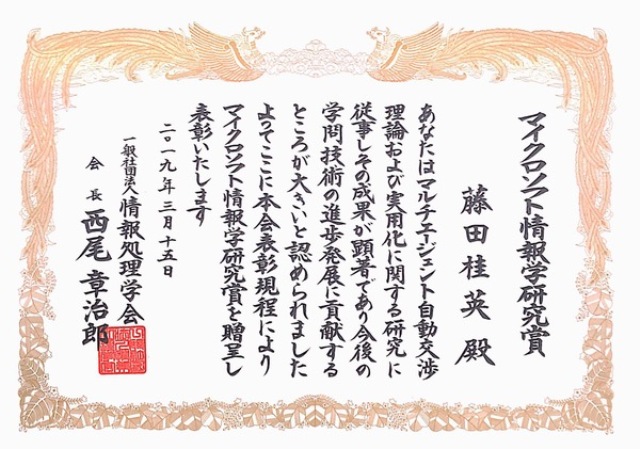 マイクロソフト情報学研究賞
藤田桂英 殿
あなたはマルチエージェント自動交渉
理論および実用化に関する研究に
従事しその成果が顕著であり今後の
学問技術の進歩発展に貢献する
ところが大きいと認められました
よってここに本会表彰規程により
マイクロソフト情報学研究賞を贈呈し
表彰いたします
二〇一九年三月十五日
一般社団法人情報処理学会
会長 西尾章治郎